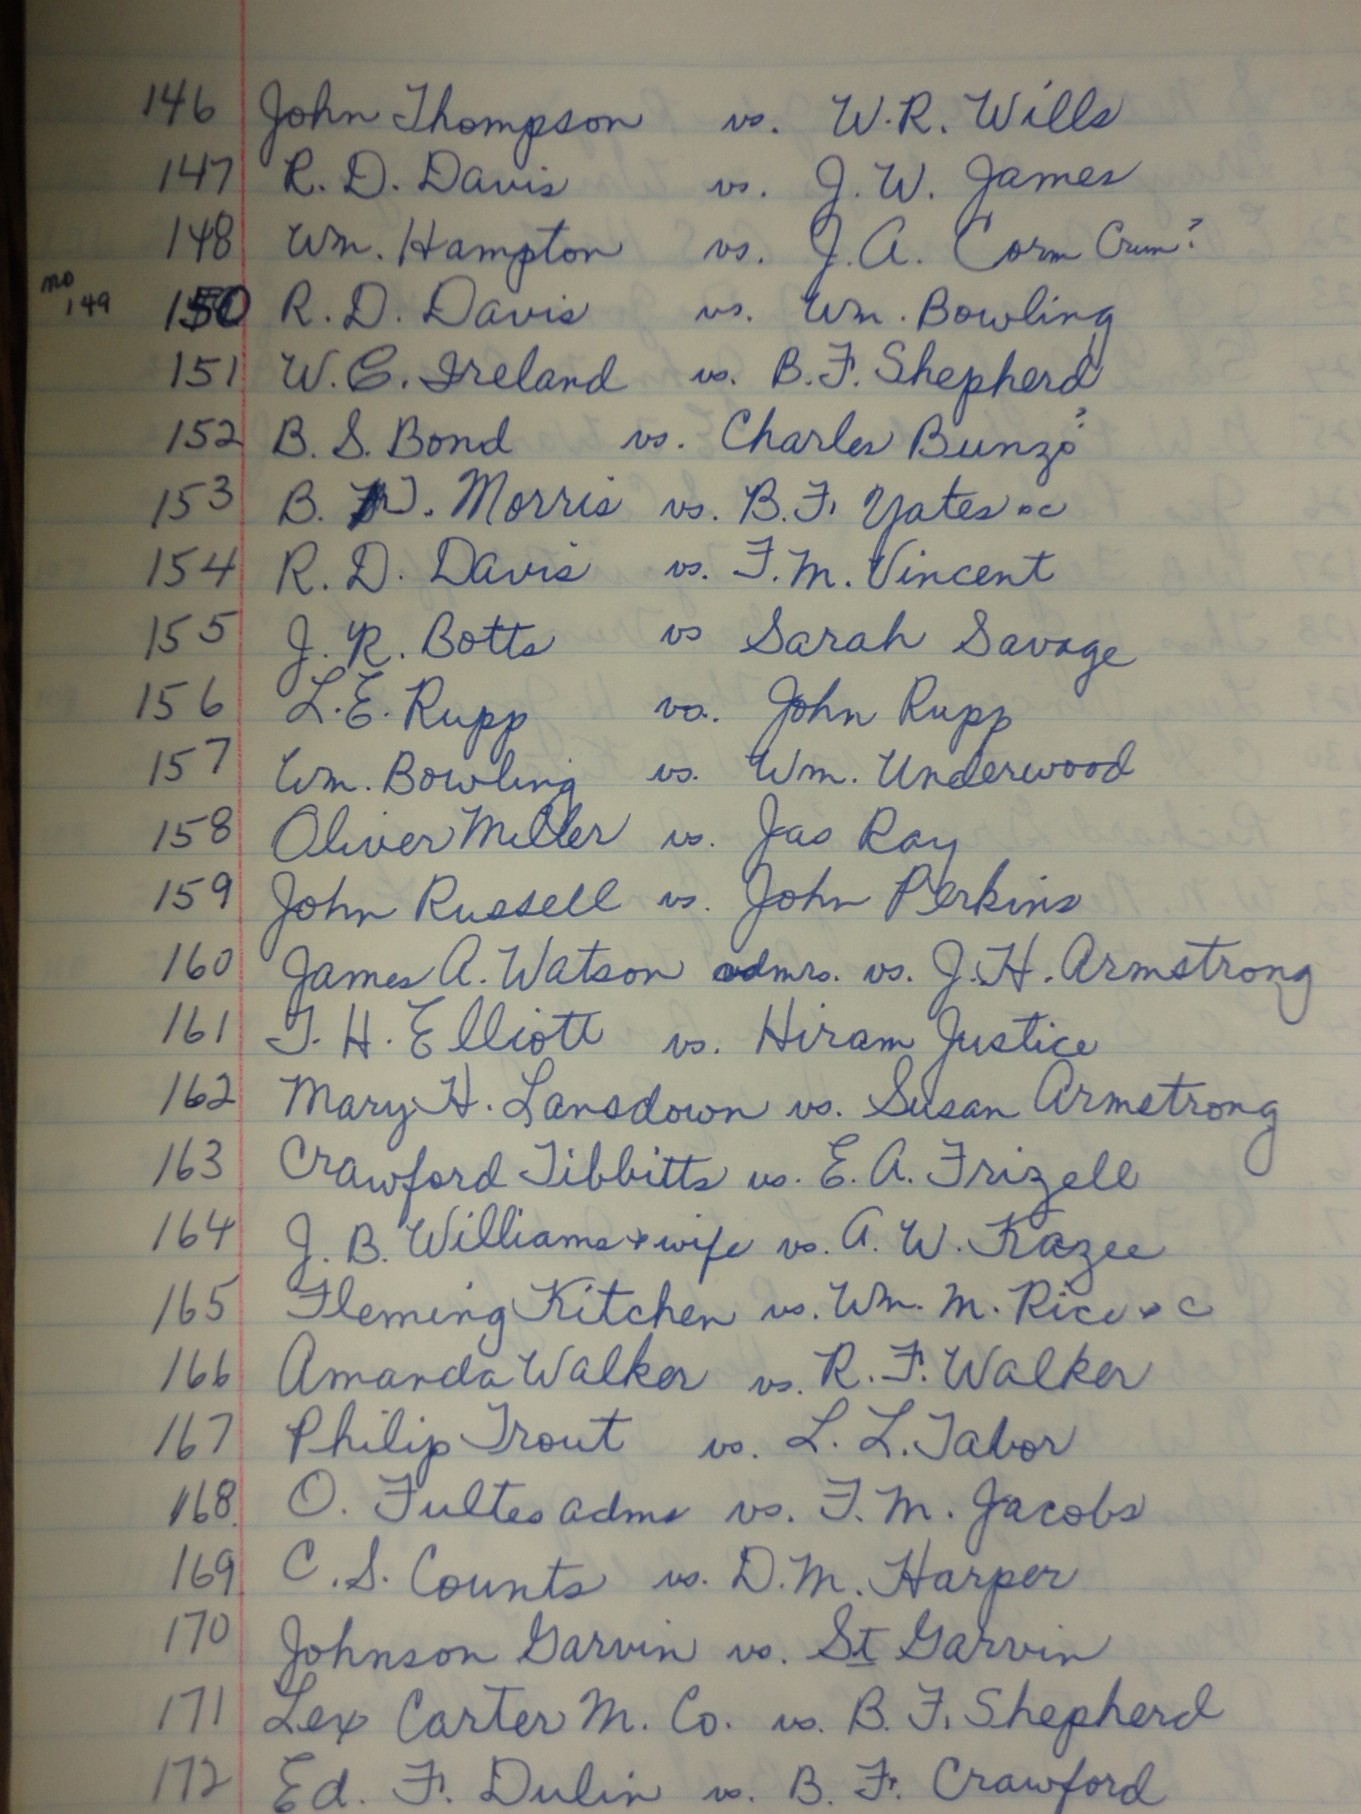 146 John Thompson vs. W.R. Wills
147 R. D. Davis vs. J. W. James
148 Wm. Hampton vs. J. A. Corm Crum?
no 149
150 R. D. Davis vs. Wm. Bowling
151 W. E. Ireland vs. B. F. Shepherd
152 B. S. Bond vs. Charles Bunzo?
153 B. J. Morris vs. B. F. Yates &c
154 R. D. Davis vs. F. M. Vincent
155 J. R. Botts vs Sarah Savage
156 L. E. Rupp vs. John Rupp
157 Wm. Bowling vs. Wm. Underwood
158 Oliver Miller vs. Jas Ray
159 John Russell vs. John Perkins
160 James A. Watson admrs. vs. J. H. Armstrong
161 T. H. Elliott vs. Hiram Justice
162 Mary H. Lansdown vs. Susan Armstrong
163 Crawford Tibbitts vs. E. A. Frizell
164 J. B. Williams & wife vs. A. W. Kazee
165 Fleming Kitchen vs. Wm. M. Rice & c
166 Amanda Walker vs. R. F. Walker
167 Philip Trout vs. L. L. Tabor
168 O. Fultes adms vs. F. M. Jacobs
169 C. S. Counts vs. D. M. Harper
170 Johnson Garvin vs. St Garvin
171 Lex Carter M. Co. vs. B. F. Shepherd
172 Ed. F. Dulin vs. B. F. Crawford